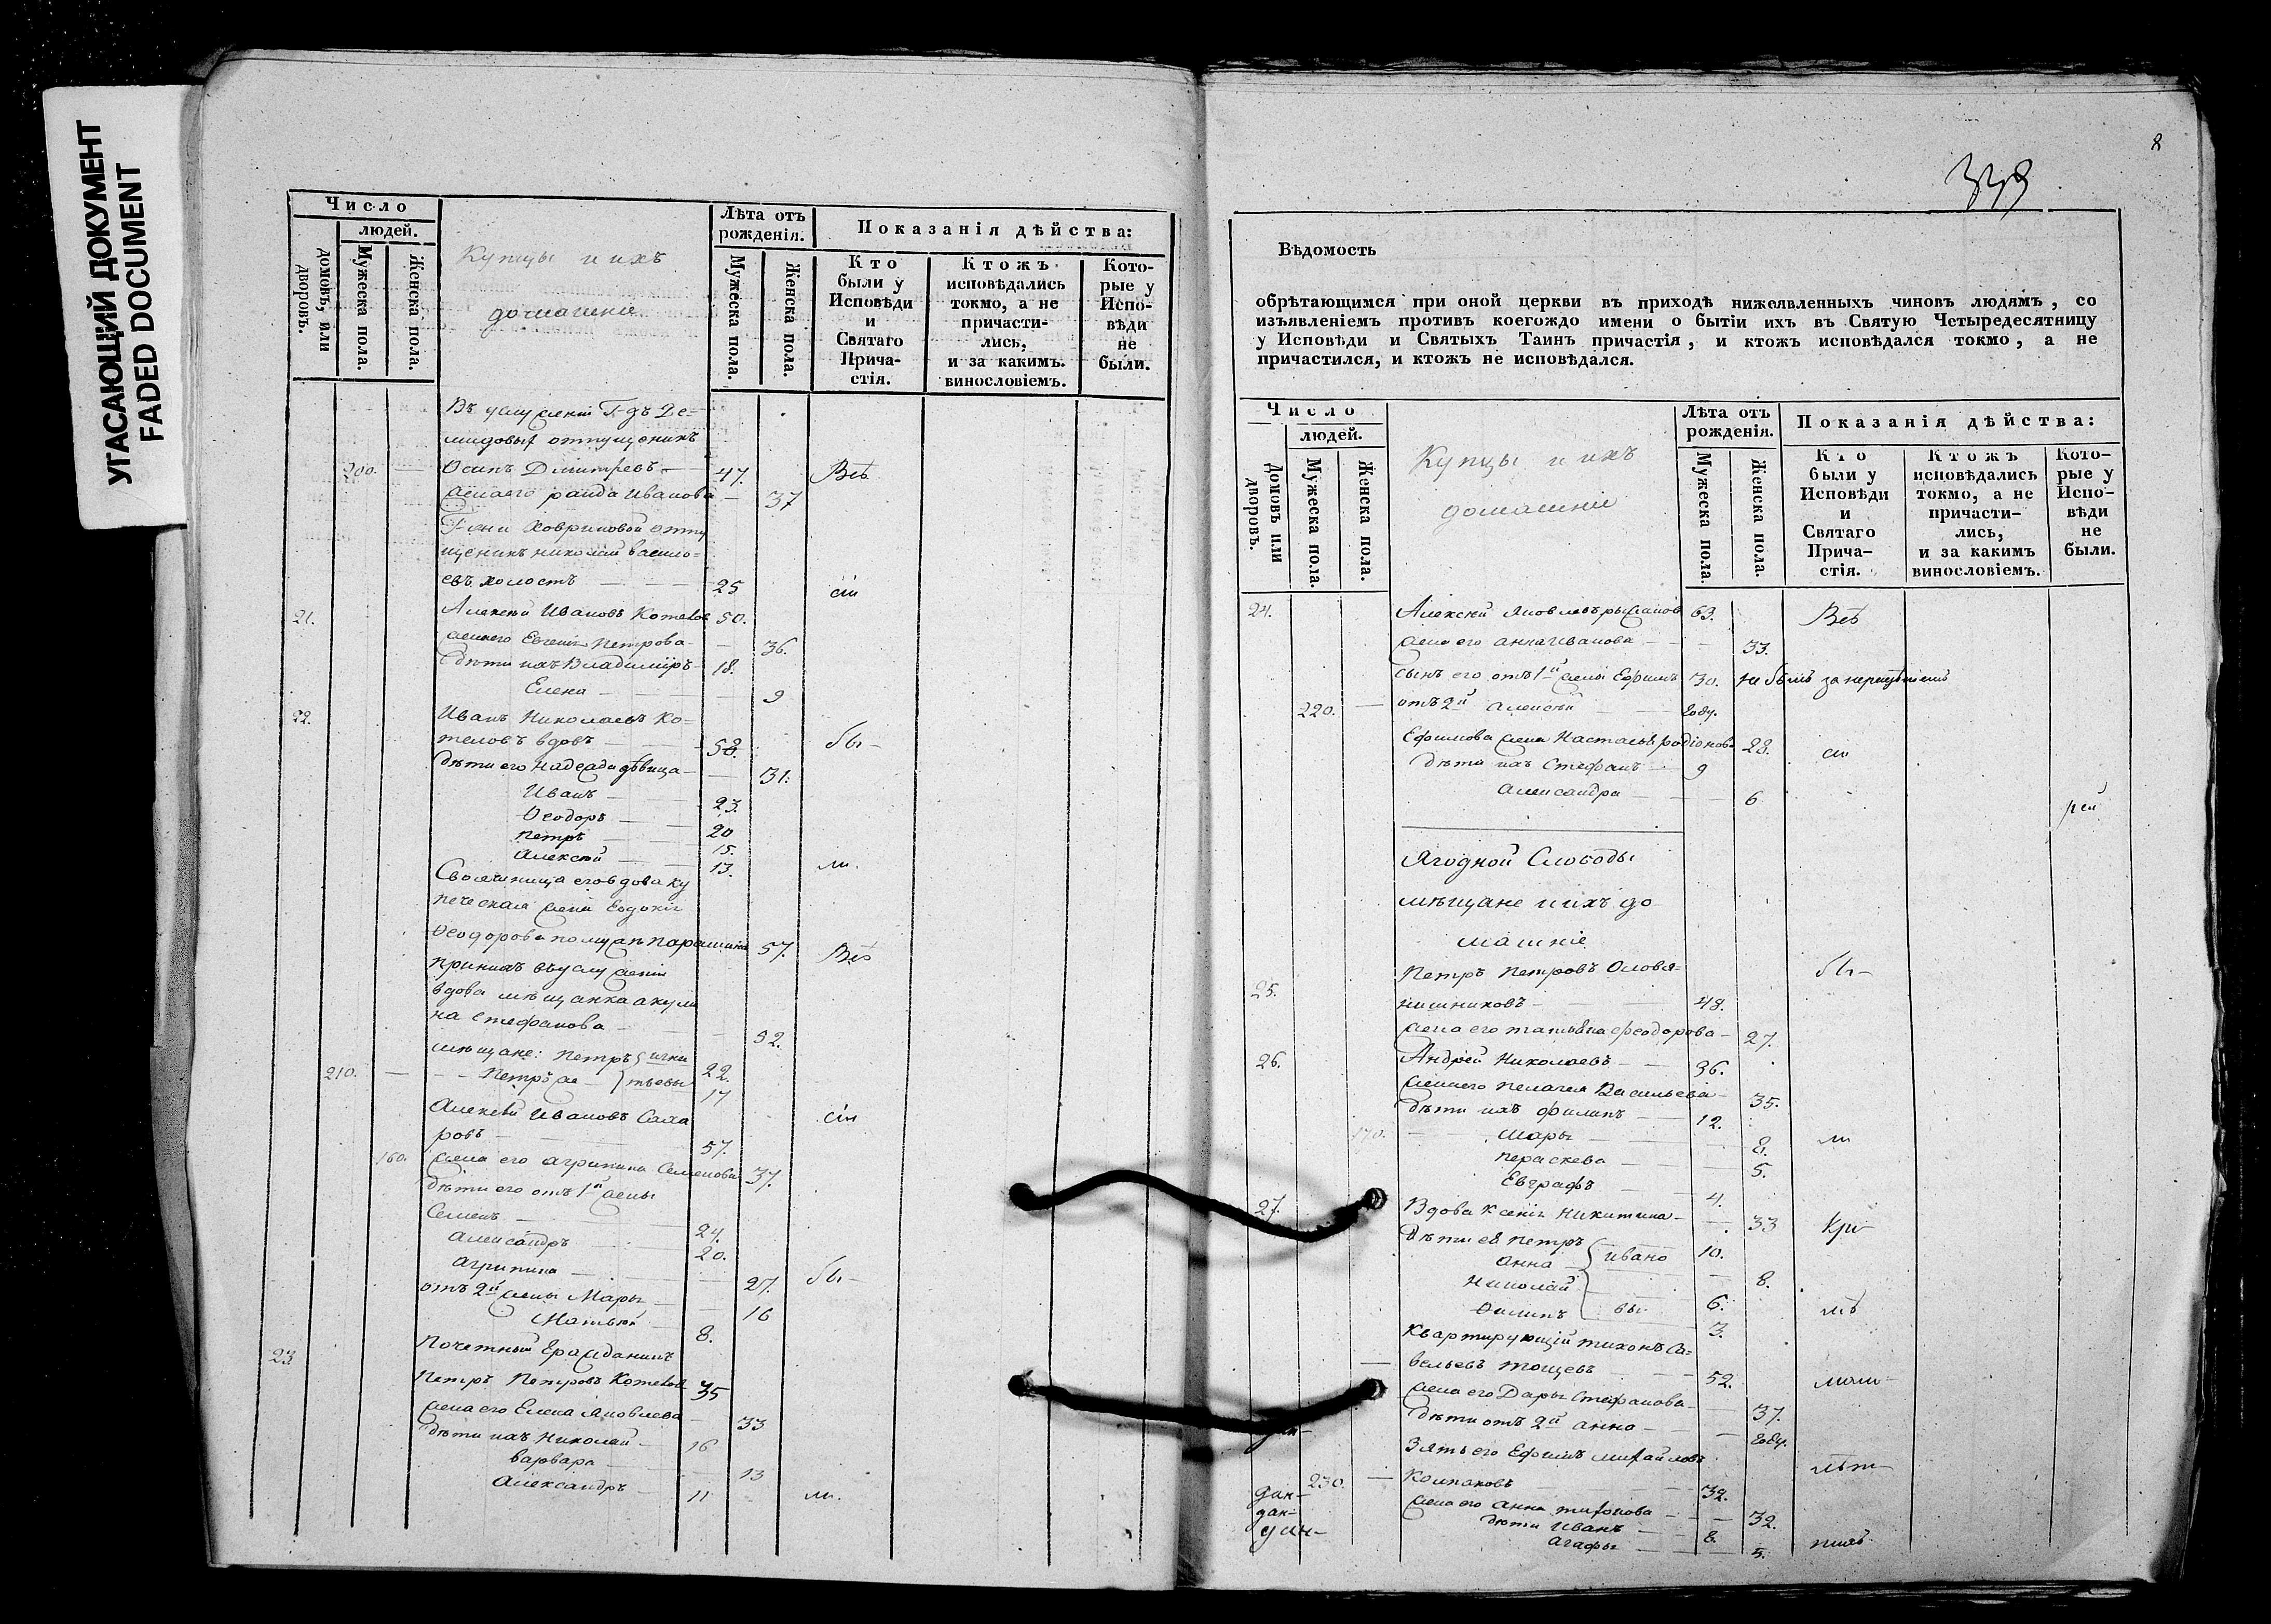 УГАСАЮЩИЙ ДОКУМЕНТ
FADED DOCUMENT
Число
людей.
домовъ, или дворовъ.
Мужеска пола.
Женска пола.
Купцы и ихъ
домашніе
Лѣта отъ
рожденія.
Мужеска пола.
Женска пола.
Показанія дѣйства:
Кто
были у
Исповѣди
и
Святаго
Прича-
стія.
Ктожъ
исповѣдались
токмо, а не
причасти-
лись,
и за какимъ.
винословіемъ.
Кото-
рые у
Испо-
вѣди
не
были.
Въ услуженіи Г-дъ Де=
мидовых отпущеникъ
200. Осипъ Димитревъ 47. Всѣ
жена его Иванова 37
Г-жи Ховриновой отпу
щеникъ николай василь=
евъ холостъ 25 сіи
21. Алексѣй Ивановъ Котелов 50.
жена его Евгенія Петрова 36.
дѣти ихъ Владиміръ 18.
Елена 9
22. Иванъ Николаевъ Ко=
теловъ вдовъ бы-
дѣти его Надежда дѣвица 31.
Иванъ 23.
Ѳеодоръ 20
Петръ 15.
Алексѣй 13. ли.
Своячиница его вдова ку
печеская жена Евдокія
Ѳеодорова 57. Всѣ
въ услуженіи
вдова мѣщанка акули
на Стефанова 52.
мѣщане: Петръ 22.
210. Петръ же 17
Алексѣй Ивановъ Саха сіи
ровъ 57.
160. жена его агрипина Семенова 37.
дѣти его отъ 1й жены
Семенъ 24.
Александръ 20.
агрипина 27. бы-
отъ 2й жены Марья 16
Матвѣй 8.
23. Почетный Гражданинъ
Петръ Петровъ Котелов 35
жена его Елена Яковлева 33
дѣти ихъ Николай 16
варвара 13
Александръ 11 ли.
8
339
Вѣдомость
обрѣтающимся при оной церкви въ приходѣ нижеявленныхъ чиновъ людямъ, со
изъявленіемъ противъ коегождо имени о бытіи ихъ въ Святую Четыредесятницу
у Исповѣди и Святыхъ Таинъ причастія, и ктожъ исповѣдался токмо, а не
причастился, и ктожъ не исповѣдался.
Число
людей.
Домовъ или дворовъ.
Мужеска пола.
Женска пола.
Купцы и ихъ
домашніе
Лѣта отъ
рожденія.
Мужеска пола.
Женска пола.
Показанія дѣйства:
Кто
были у
Исповѣди
и
Святаго
Прича-
стія.
Ктожъ
исповѣдались
токмо, а не
причасти-
лись,
и за какимъ
винословіемъ.
Кото-
рые у
Испо-
вѣди
не
были.
24. Алексѣй Яковлевъ 63. Всѣ
жена его анна Иванова 33.
сынъ его отъ 1й жены Ефимъ 30. не былъ за нерадѣніемъ
220. отъ 2й Алексѣй году.
Ефимова жена Настасья родіонова 28. сіи
дѣти ихъ Стефанъ 9
Александра 6
Ягодной Слободы
мѣщане и ихъ до
машніе
Петръ Петровъ Оловя= бы-
25. нишниковъ 48.
жена его татьяна феодорова 27.
26. Андрей Николаевъ 36.
жена его Пелагея Васильева 35.
дѣти ихъ филипъ 12.
170. Марья 8. ли
параскева 5.
Евграфъ 4.
27. Вдова Ксенія Никитина 33 Кри-
дѣти ея Петръ ивано 10.
анна 8.
Николай 6. лѣ
Филипъ вы 3.
Квартирующій тихонъ Са=
вельевъ 52.
жена его Дарья Стефанова 37.
дѣти отъ 2й анна году.
Зять его Ефимъ михайловъ
230. Колпаковъ 32.
жена его анна тихонова 32.
дѣти Иванъ 8.
агафья 5.